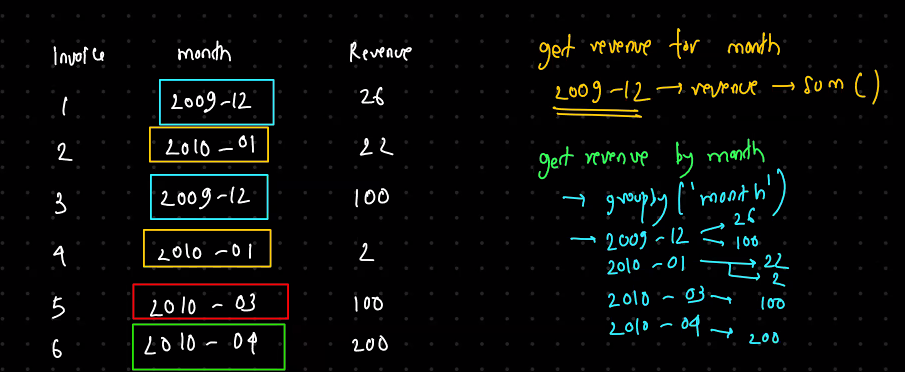 Invoice month Revenue
1 2009-12 26
2 2010-01 22
3 2009-12 100
4 2010-01 2
5 2010-03 100
6 2010-04 200
get revenue for month
2009-12 → revenue → sum()
get revenue by month
→ groupby('month')
→ 2009-12 → 26
→ 100
2010-01 → 22
→ 2
2010-03 → 100
2010-04 → 200